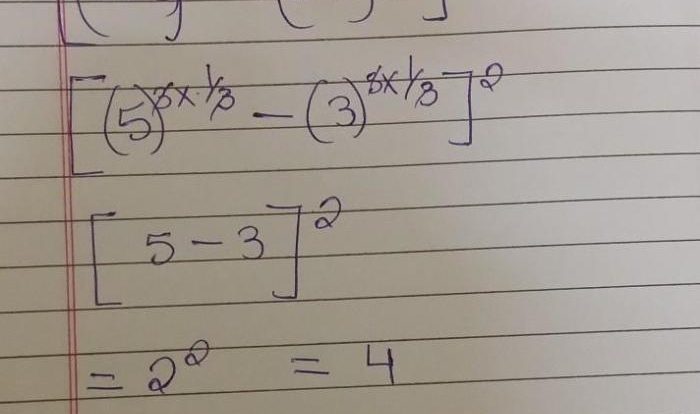 [(5)^{3×1/3} − (3)^{3×1/3}]^2
[5 − 3]^2
= 2^2 = 4